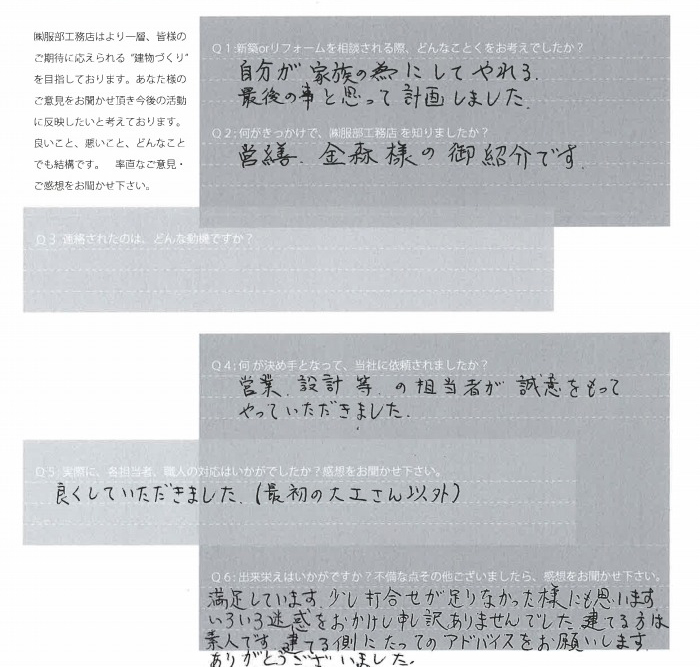 ㈱服部工務店はより一層、皆様の
ご期待に応えられる "建物づくり"
を目指しております。あなた様の
ご意見をお聞かせ頂き今後の活動
に反映したいと考えております。
良いこと、悪いこと、どんなこと
でも結構です。 率直なご意見・
ご感想をお聞かせ下さい。
Q1:新築orリフォームを相談される際、どんなことくをお考えでしたか?
自分が家族の為にしてやれる.
最後の事と思って計画しました.
Q2:何がきっかけで、㈱服部工務店 を知りましたか?
営繕. 金森様の御紹介です.
Q3:連絡されたのは、どんな動機ですか?
Q4:何 が決め手となって、当社に依頼されましたか?
営業. 設計 等. の担当者が 誠意をもって
やっていただきました.
Q5:実際に、各担当者、職人の対応はいかがでしたか?感想をお聞かせ下さい。
良くしていただきました.(最初の大工さん以外)
Q6:出来栄えはいかがですか?不備な点その他ございましたら、感想をお聞かせ下さい。
満足しています. 少し打合せが足りなかった様にも思います
いろいろ迷惑をおかけし申し訳ありませんでした. 建てる方は
素人です. 建てる側にたってのアドバイスをお願いします.
ありがとうございました.